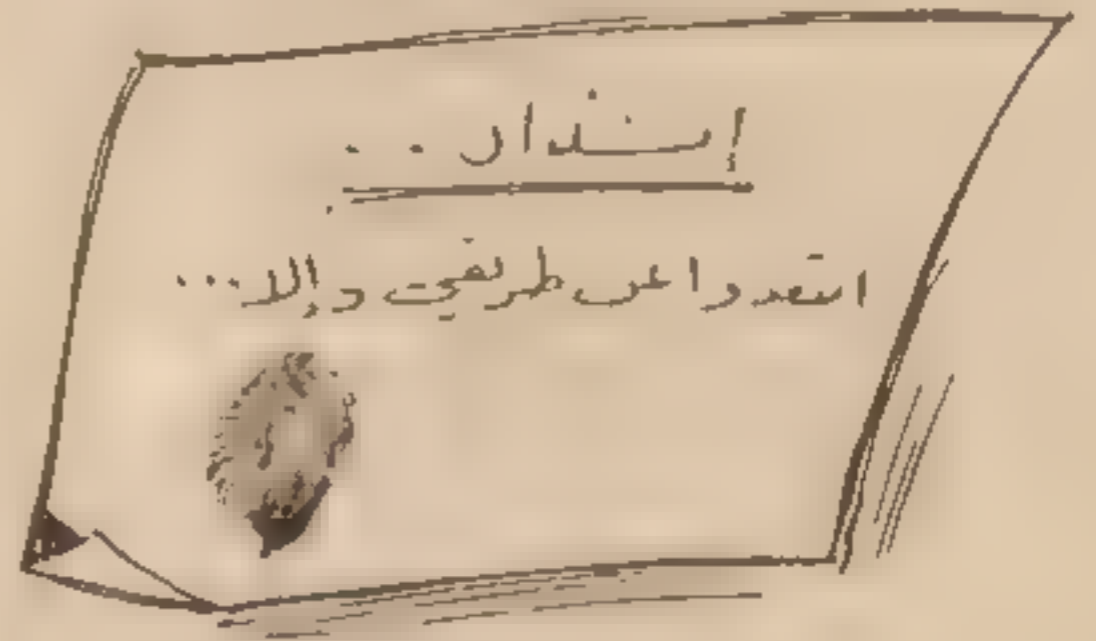 إنذار ..
ابتعدوا عن طريقي وإلا ...